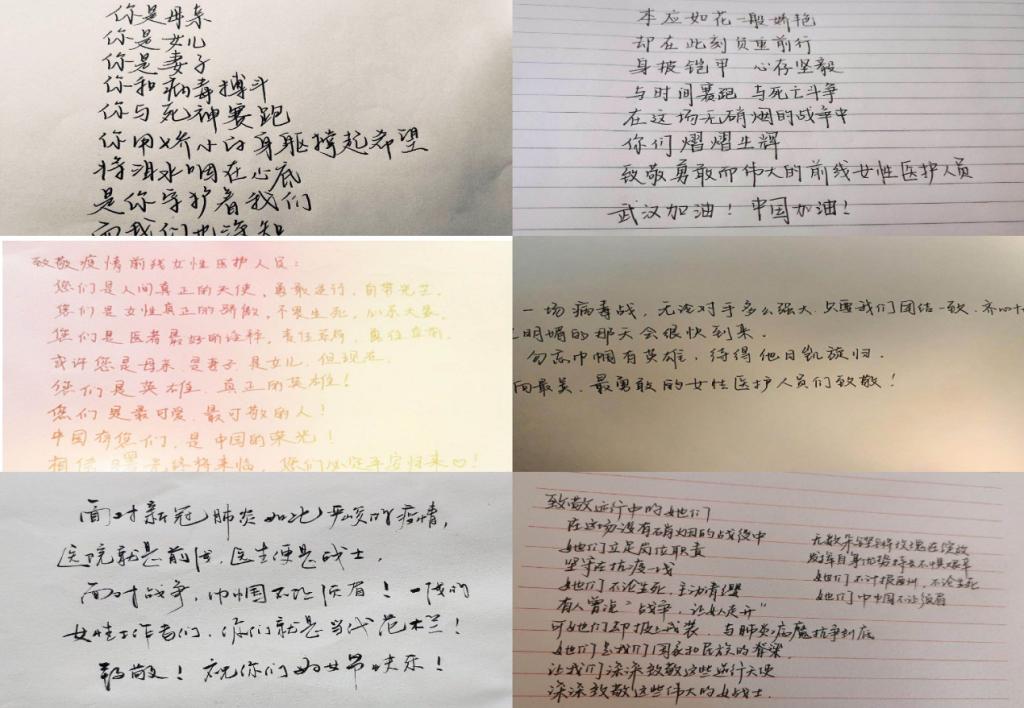 你是母亲
你是女儿
你是妻子
你和病毒搏斗
你与死神赛跑
你用娇小的身躯撑起希望
将泪水咽在心底
是你守护着我们
而我们也深知
本应如花一般娇艳
却在此刻负重前行
身披铠甲 心存坚毅
与时间赛跑 与死亡斗争
在这场无硝烟的战争中
你们熠熠生辉
致敬勇敢而伟大的前线女性医护人员
武汉加油！中国加油！
致敬疫情前线女性医护人员：
您们是人间真正的天使，勇敢逆行，自带光芒。
您们是女性真正的骄傲，不畏生死，心系大爱。
您们是医者最好的诠释，责任至肩，勇往直前。
或许您是母亲、是妻子、是女儿，但现在
您们是英雄，真正的英雄！
您们是最可爱、最可敬的人！
中国有您们，是中国的荣光！
相信曙光终将来临，您们必定平安归来♡！
一场病毒战，无论对手多么强大，只要我们团结一致、齐心
明媚的那天会很快到来。
勿忘巾帼有英雄，待得他日凯旋归。
向最美、最勇敢的女性医护人员们致敬！
面对新冠肺炎如此严峻的疫情，
医院就是前线，医生便是战士。
面对战争，巾帼不让须眉！一线的
女性工作者们，你们就是当代花木兰！
致敬！祝你们妇女节快乐！
致敬逆行中的她们
在这场没有硝烟的战役中
她们立足岗位职责
坚守在抗疫一线
她们不论生死，主动请缨
有人曾说“战争，让女人走开”
可她们却披上戎装，与肺炎病魔抗争到底
她们是我们国家和民族的脊梁
让我们深深致敬这些逆行天使
深深致敬这些伟大的女战士
无数朵铿锵玫瑰在绽放
发挥自身优势特长不惧艰辛
她们不计报酬，不论生死
她们巾帼不让须眉